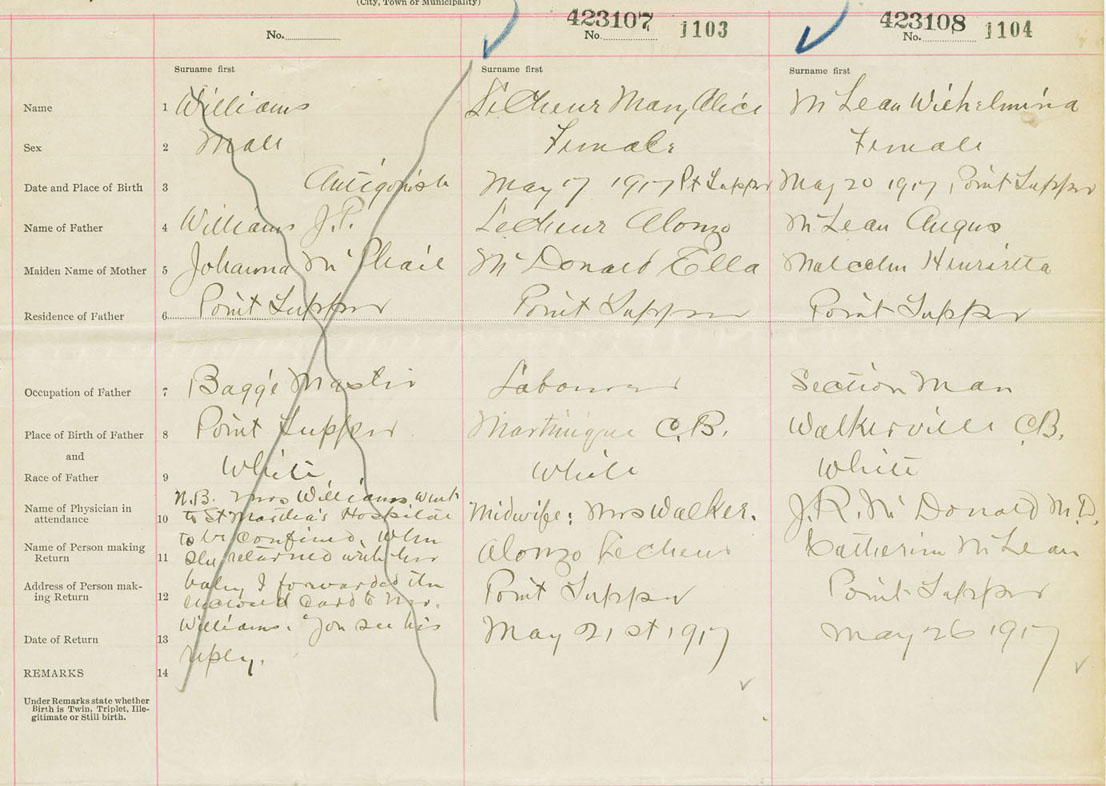 (City, Town or Municipality)
No. 423107 No. 1103 423108 No. 1104
Surname first Surname first Surname first
Name 1 Williams LeCheur Mary Alice McLean Wilhelmina
Sex 2 Male Female Female
Date and Place of Birth 3 Antigonish May 17 1917 Pt Tupper May 20 1917, Point Tupper
Name of Father 4 Williams J.P. LeCheur Alonzo McLean Angus
Maiden Name of Mother 5 Johanna McPhail McDonald Ella Malcolm Henrietta
Residence of Father 6 Point Tupper Point Tupper Point Tupper
Occupation of Father 7 Bagg'e Master Labourer Section Man
Place of Birth of Father 8 Point Tupper Martinique C.B. Walkerville C.B.
and
Race of Father 9 White White White
Name of Physician in attendance 10 N.B. Mrs Williams went to St Martha's Hospital Midwife: Mrs Walker. J.R. McDonald M.D.
Name of Person making Return 11 to be confined. When she returned with her Alonzo Lecheur Katherine McLean
Address of Person making Return 12 baby I forwarded the enclosed card to Mr. Point Tupper Point Tupper
Date of Return 13 Williams. You see his May 21st 1917 May 26 1917
REMARKS 14 reply.
Under Remarks state whether
Birth is Twin, Triplet, Ille-
gitimate or Still birth.